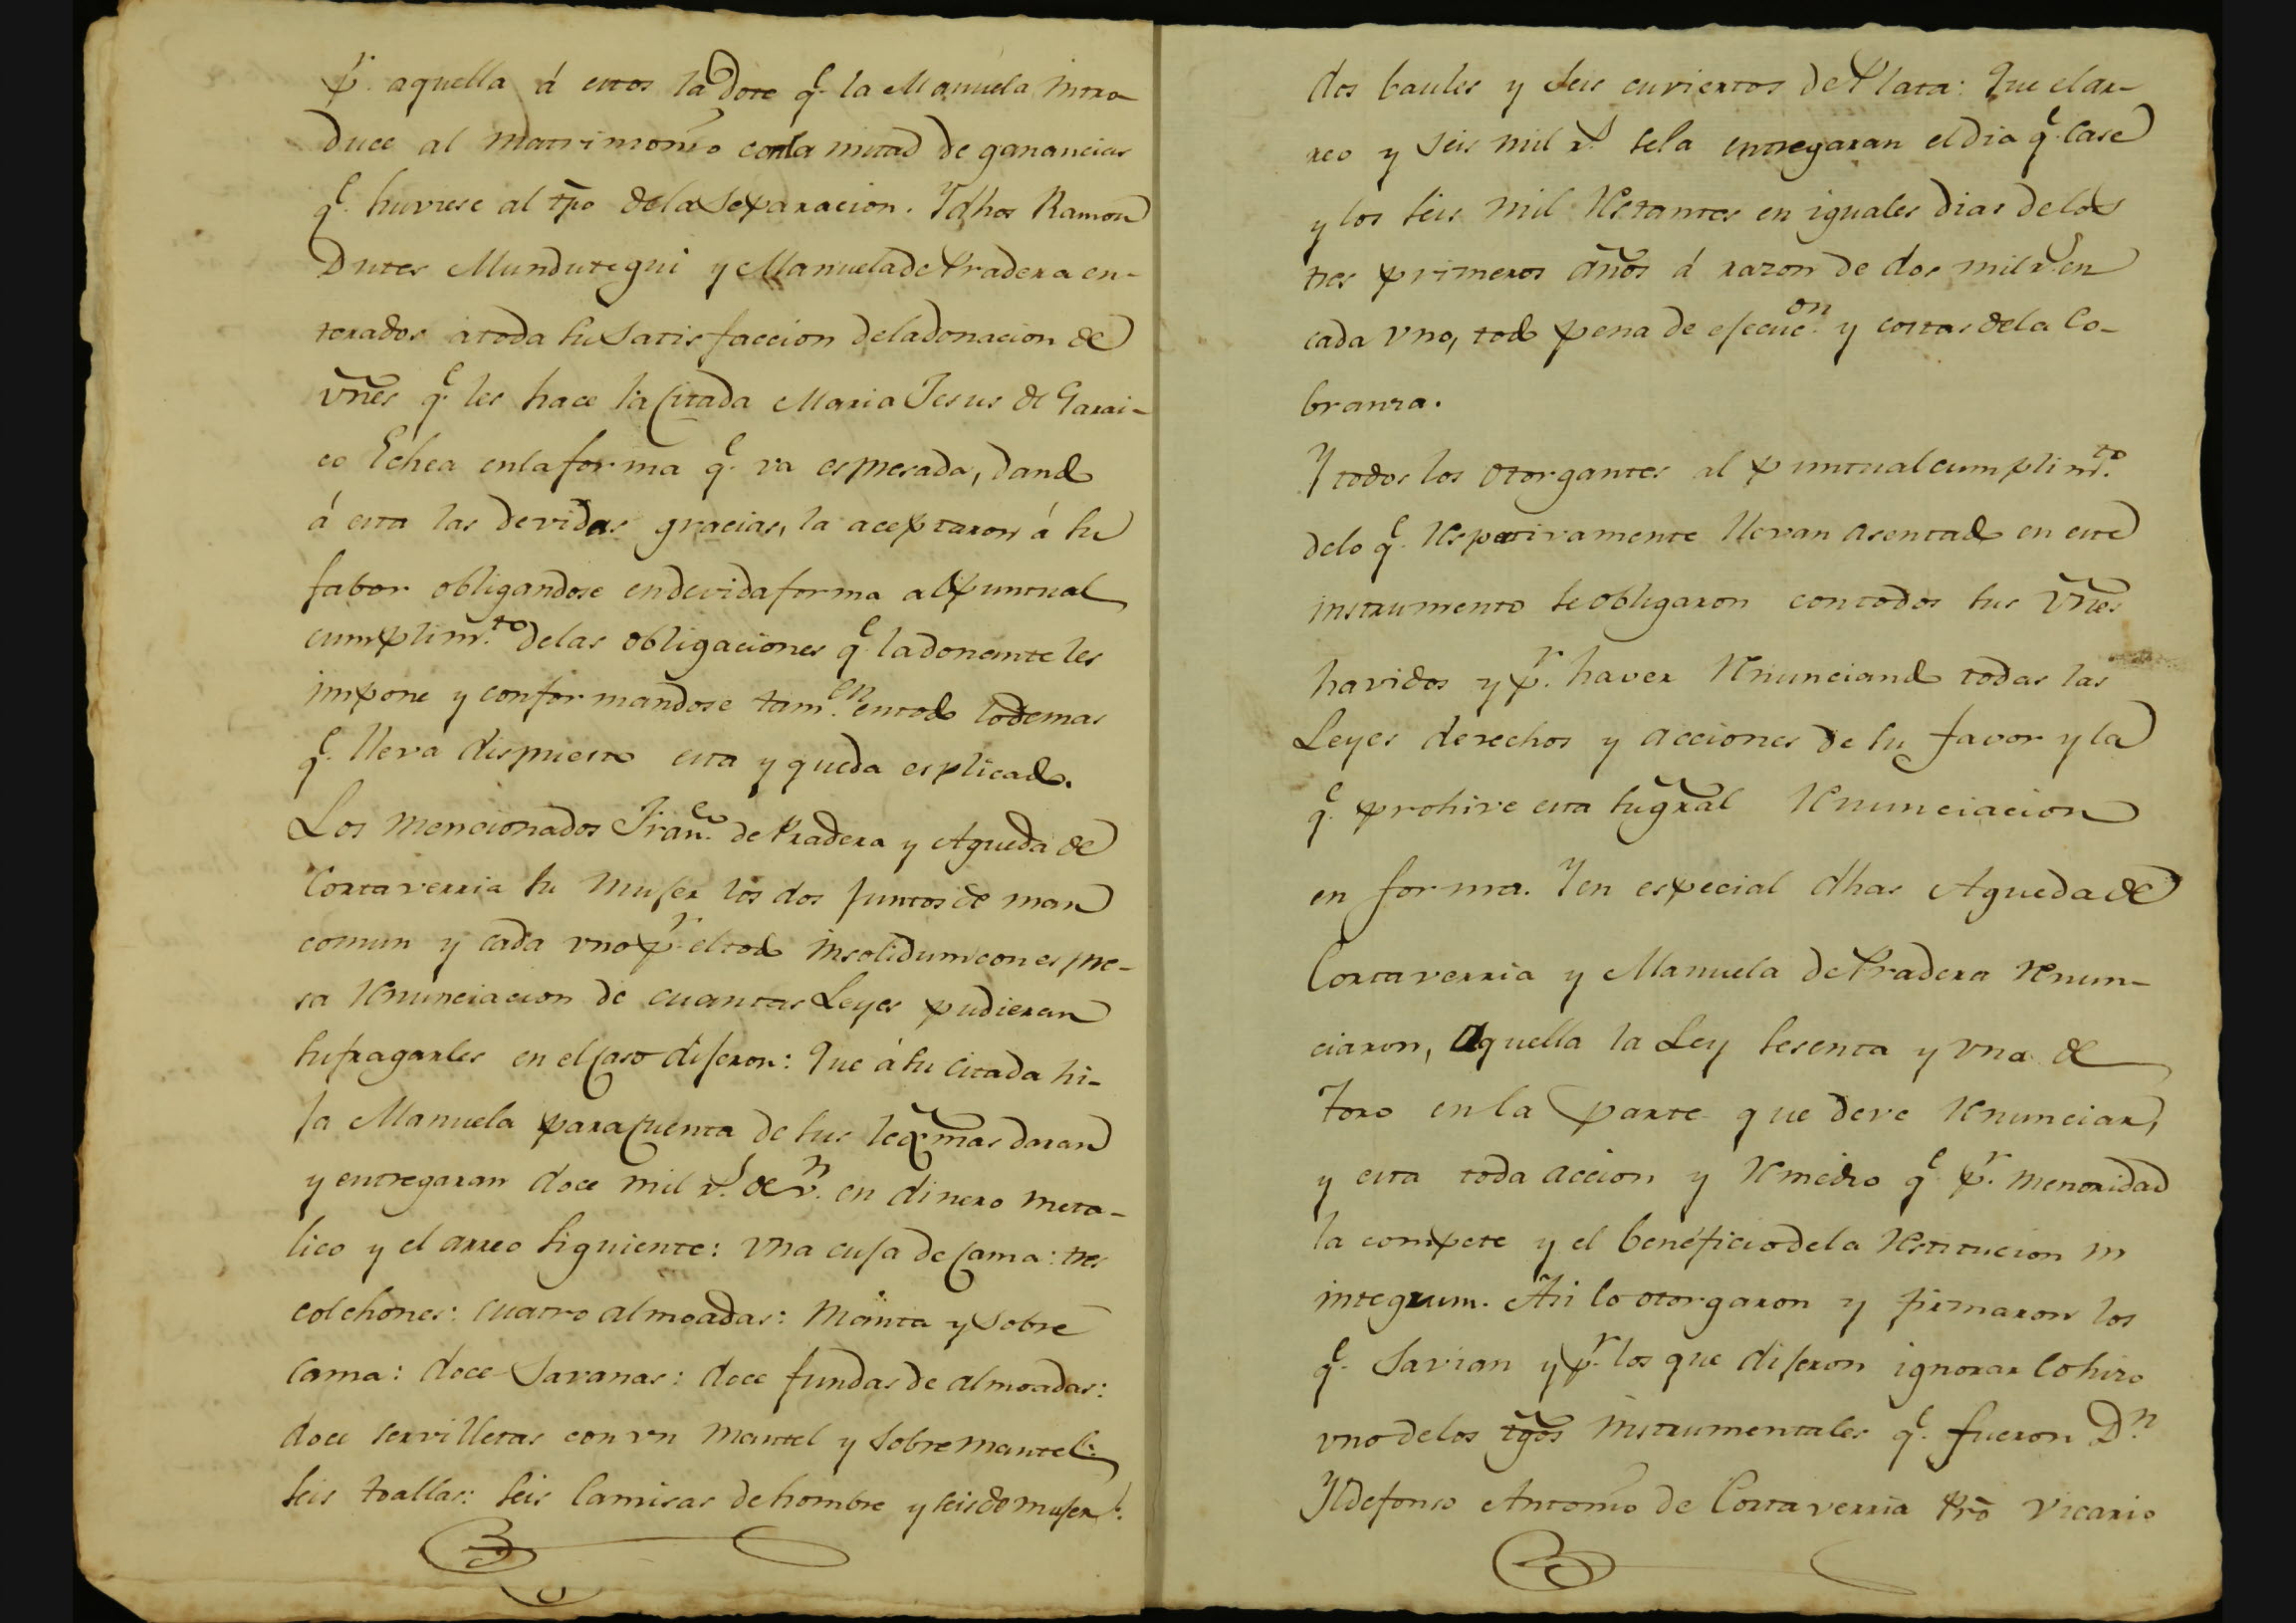 p.r aquella á estos la Dote q.e la Manuela intro-
duce al matrimonio con la mitad de ganancias
q.e huviese al tpo dela Separacion. Y dhos Ramon
Dutes Mundutegui y Manuela de Pradera en-
terados á toda su Satisfaccion dela donacion de
vnes q.e les hace la Citada Maria Jesus de Garai-
co Echea en la forma q.e va espresada, dando
á esta las devidas gracias, la aceptaron á su
fabor obligandose en devida forma al puntual
cumplim.to delas obligaciones q.e la donante les
impone y conformandose tam.en en todo lo demas
q.e lleva dispuesto esta y queda esplicado.
Los mencionados Fran.co de Pradera y Agueda de
Cortaverria su Muger los dos juntos de man
comun y cada vno p.r el todo insolidum con espre-
sa renunciacion de cuantas Leyes pudieran
sufragarles en el caso dijeron: Que á su citada hi-
ja Manuela para cuenta de sus legmas daran
y entregaran doce mil r.s de v.n en dinero meta-
lico y el arreo siguiente: Una cuja de cama: tres
colchones: cuatro almoadas: Manta y Sobre
cama: doce Savanas: doce fundas de almoadas:
doce servilletas con vn mantel y Sobremantel:
seis toallas: seis Camisas de hombre y seis de mujer:
dos baules y seis cuviertos de Plata: Que el ar-
reo y seis mil r.s se la entregaran el dia q.e case
y los seis mil restantes en iguales dias de los
tres primeros años á razon de dos mil r.s en
cada vno, todo pena de ejecuc.on y costas dela Co-
branza.
Y todos los otorgantes al puntual cumplim.to
delo q.e respectivamente llevan asentado en este
instrumento se obligaron con todos sus Vnes
havidos y p.r haver renunciando todas las
Leyes derechos y acciones de su favor y la
q.e prohive esta su gral renunciacion
en forma. Y en especial dhas Agueda de
Cortaverria y Manuela de Pradera renun-
ciaron, aquella la Ley sesenta y vna de
Toro en la parte que deve renunciar,
y esta toda accion y remedio q.e p.r menoridad
la compete y el beneficio dela restitucion in
integrum. Asi lo otorgaron y firmaron los
q.e Savian y p.r los que dijeron ignorar lo hizo
vno delos tgos instrumentales q.e fueron D.n
Yldefonso Antonio de Cortaverria Pro Vicario